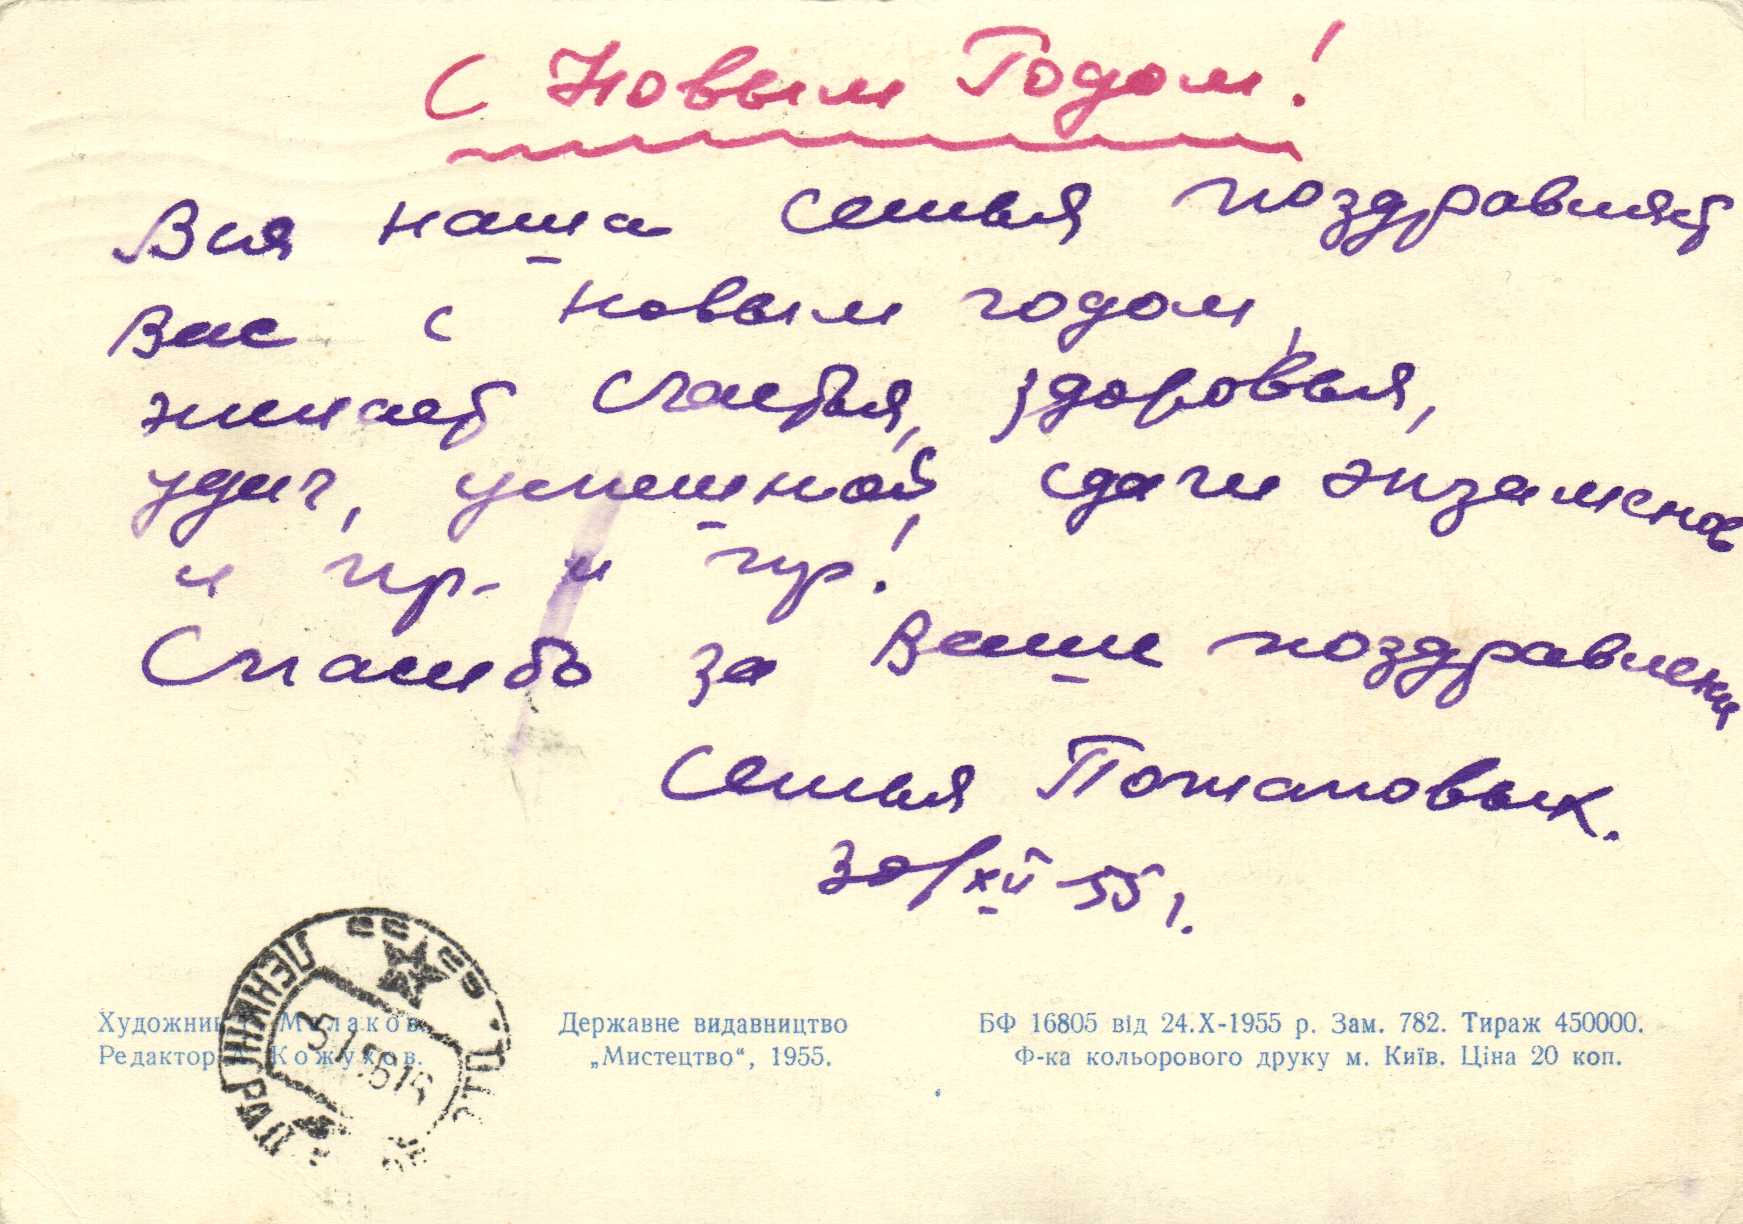 С Новым Годом!
Вся наша семья поздравляет
Вас с новым годом,
желает счастья, здоровья,
удач, успешной сдачи экзаменов
и пр. и пр.!
Спасибо за Ваши поздравления
Семья Потаповых.
30/XII 55 г.
ЛЕНИНГРАД
5 1 56 18
Художник Малаков.
Редактор А. Кожухов.
Державне видавництво
„Мистецтво“, 1955.
БФ 16805 від 24.X-1955 р. Зам. 782. Тираж 450000.
Ф-ка кольорового друку м. Київ. Ціна 20 коп.